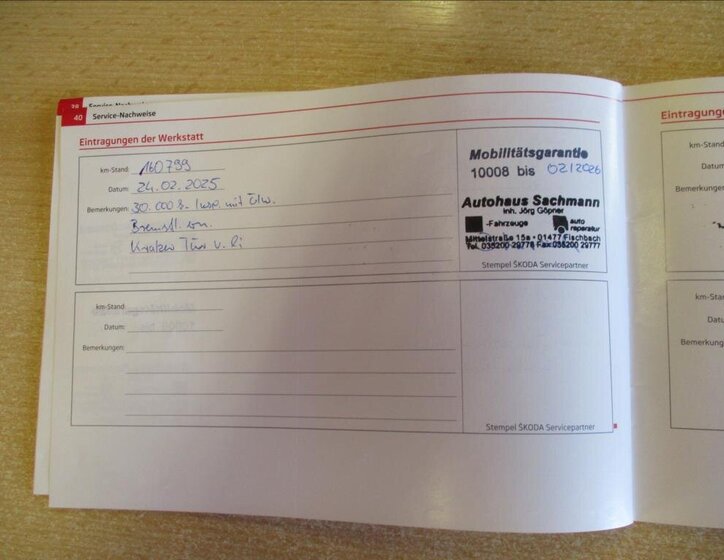 39 Service-Nachweise
40 Service-Nachweise
Eintragungen der Werkstatt
km-Stand: 160799
Datum: 24.02.2025
Bemerkungen: 30.000 er Insp. mit Ölw.
Bremsfl. ern.
Kratzer Tür v. li
Mobilitätsgarantie
10008 bis 02/2026
Autohaus Sachmann
Inh. Jörg Göpner
-Fahrzeuge auto reparatur
Mittelstraße 15a • 01477 Fischbach
Tel. 035200 29778 Fax 035200 29777
Stempel ŠKODA Servicepartner
km-Stand:
Datum:
Bemerkungen:
Stempel ŠKODA Servicepartner
Eintragung
km-Stand
Datum
Bemerkungen
km-Stand
Datu
Bemerkung